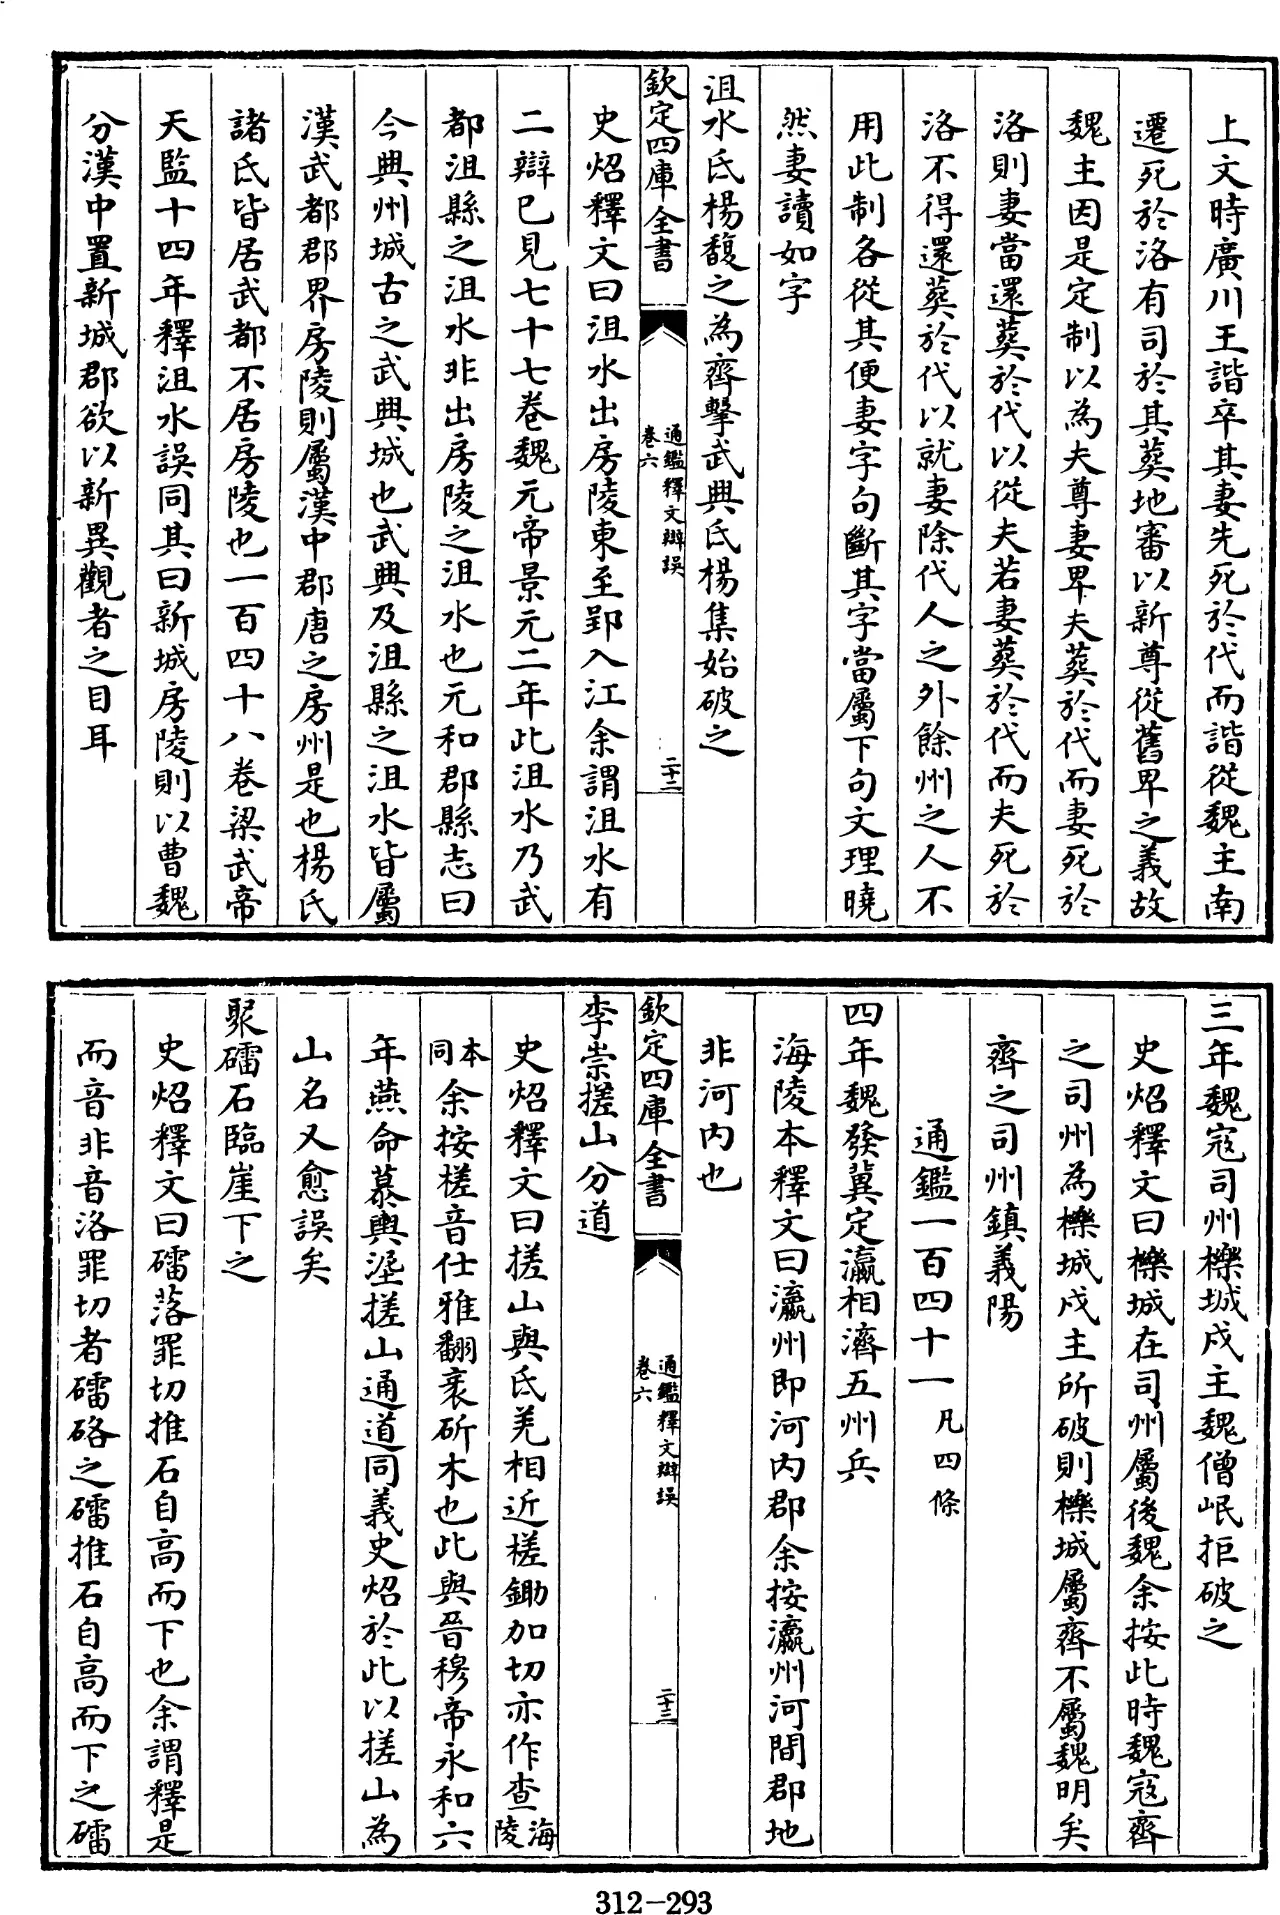 上文時廣川王諧卒其妻先死於代而諧從魏主南
遷死於洛有司於其葬地審以新尊從舊卑之義故
魏主因是定制以為夫尊妻卑夫葬於代而妻死於
洛則妻當還葬於代以從夫若妻葬於代而夫死於
洛不得還葬於代以就妻除代人之外餘州之人不
用此制各從其便妻字句斷其字當屬下句文理曉
然妻讀如字
沮水氐楊馥之為齊擊武興氐楊集始破之
欽定四庫全書
通鑑釋文辯誤
卷六
二十二
史炤釋文曰沮水出房陵東至郢入江余謂沮水有
二辯已見七十七卷魏元帝景元二年此沮水乃武
都沮縣之沮水非出房陵之沮水也元和郡縣志曰
今興州城古之武興城也武興及沮縣之沮水皆屬
漢武都郡界房陵則屬漢中郡唐之房州是也楊氏
諸氐皆居武都不居房陵也一百四十八卷梁武帝
天監十四年釋沮水誤同其曰新城房陵則以曹魏
分漢中置新城郡欲以新異觀者之目耳
三年魏寇司州櫟城戍主魏僧岷拒破之
史炤釋文曰櫟城在司州屬後魏余按此時魏寇齊
之司州為櫟城戍主所破則櫟城屬齊不屬魏明矣
齊之司州鎮義陽
通鑑一百四十一 凡四條
四年魏發冀定瀛相濟五州兵
海陵本釋文曰瀛州即河內郡余按瀛州河間郡地
非河內也
欽定四庫全書
通鑑釋文辯誤
卷六
二十三
李崇搓山分道
史炤釋文曰搓山與氐羌相近槎鋤加切亦作查海陵
本同余按槎音仕雅翻衺斫木也此與晉穆帝永和六
年燕命慕輿埿搓山通道同義史炤於此以搓山為
山名又愈誤矣
聚礌石臨崖下之
史炤釋文曰礌落罪切推石自高而下也余謂釋是
而音非音洛罪切者礌硌之礌推石自高而下之礌
312-293